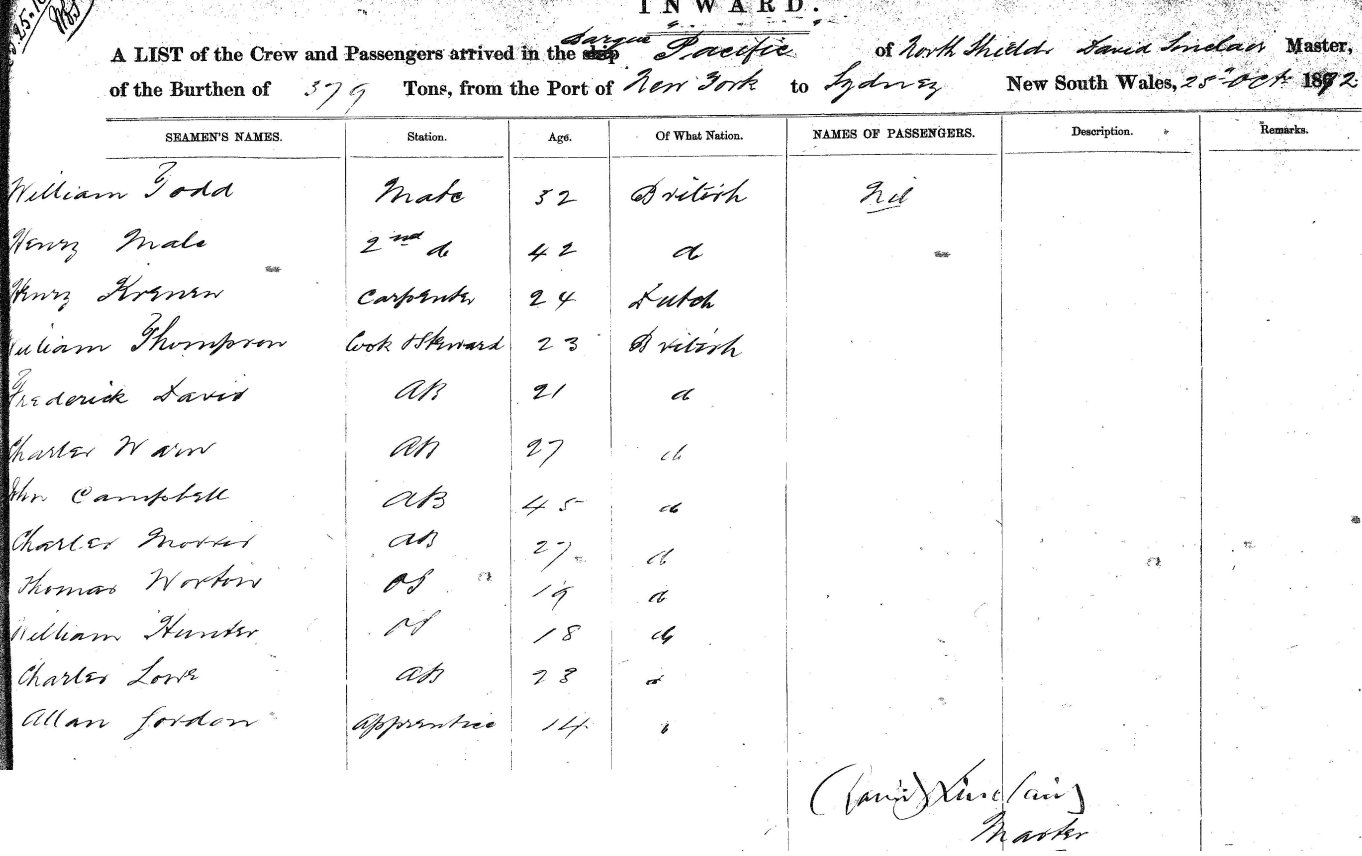 INWARD.
A LIST of the Crew and Passengers arrived in the ship Barque Pacific of North Shields David Sinclair Master,
of the Burthen of 379 Tons, from the Port of New York to Sydney New South Wales, 25th Oct 1872
SEAMEN'S NAMES. Station. Age. Of What Nation. NAMES OF PASSENGERS. Description. Remarks.
William Todd Mate 32 British Nil
Henry Male 2nd do 42 do
Henry Krenen Carpenter 24 Dutch
William Thompson Cook & Steward 23 British
Frederick David AB 21 do
Charles Warn AB 27 do
John Campbell AB 45 do
Charles Morris AB 27 do
Thomas Worton OS 19 do
William Hunter OS 18 do
Charles Lowe AB 23 do
Allan Gordon Apprentice 14
(David) Sinclair)
Master